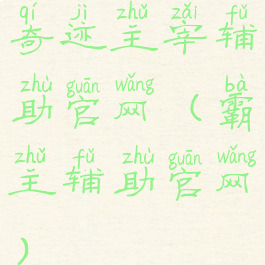 qí jì zhǔ zǎi fǔ
奇迹主宰辅
zhù guān wǎng bà
助官网（霸
zhǔ fǔ zhù guān wǎng
主辅助官网
）